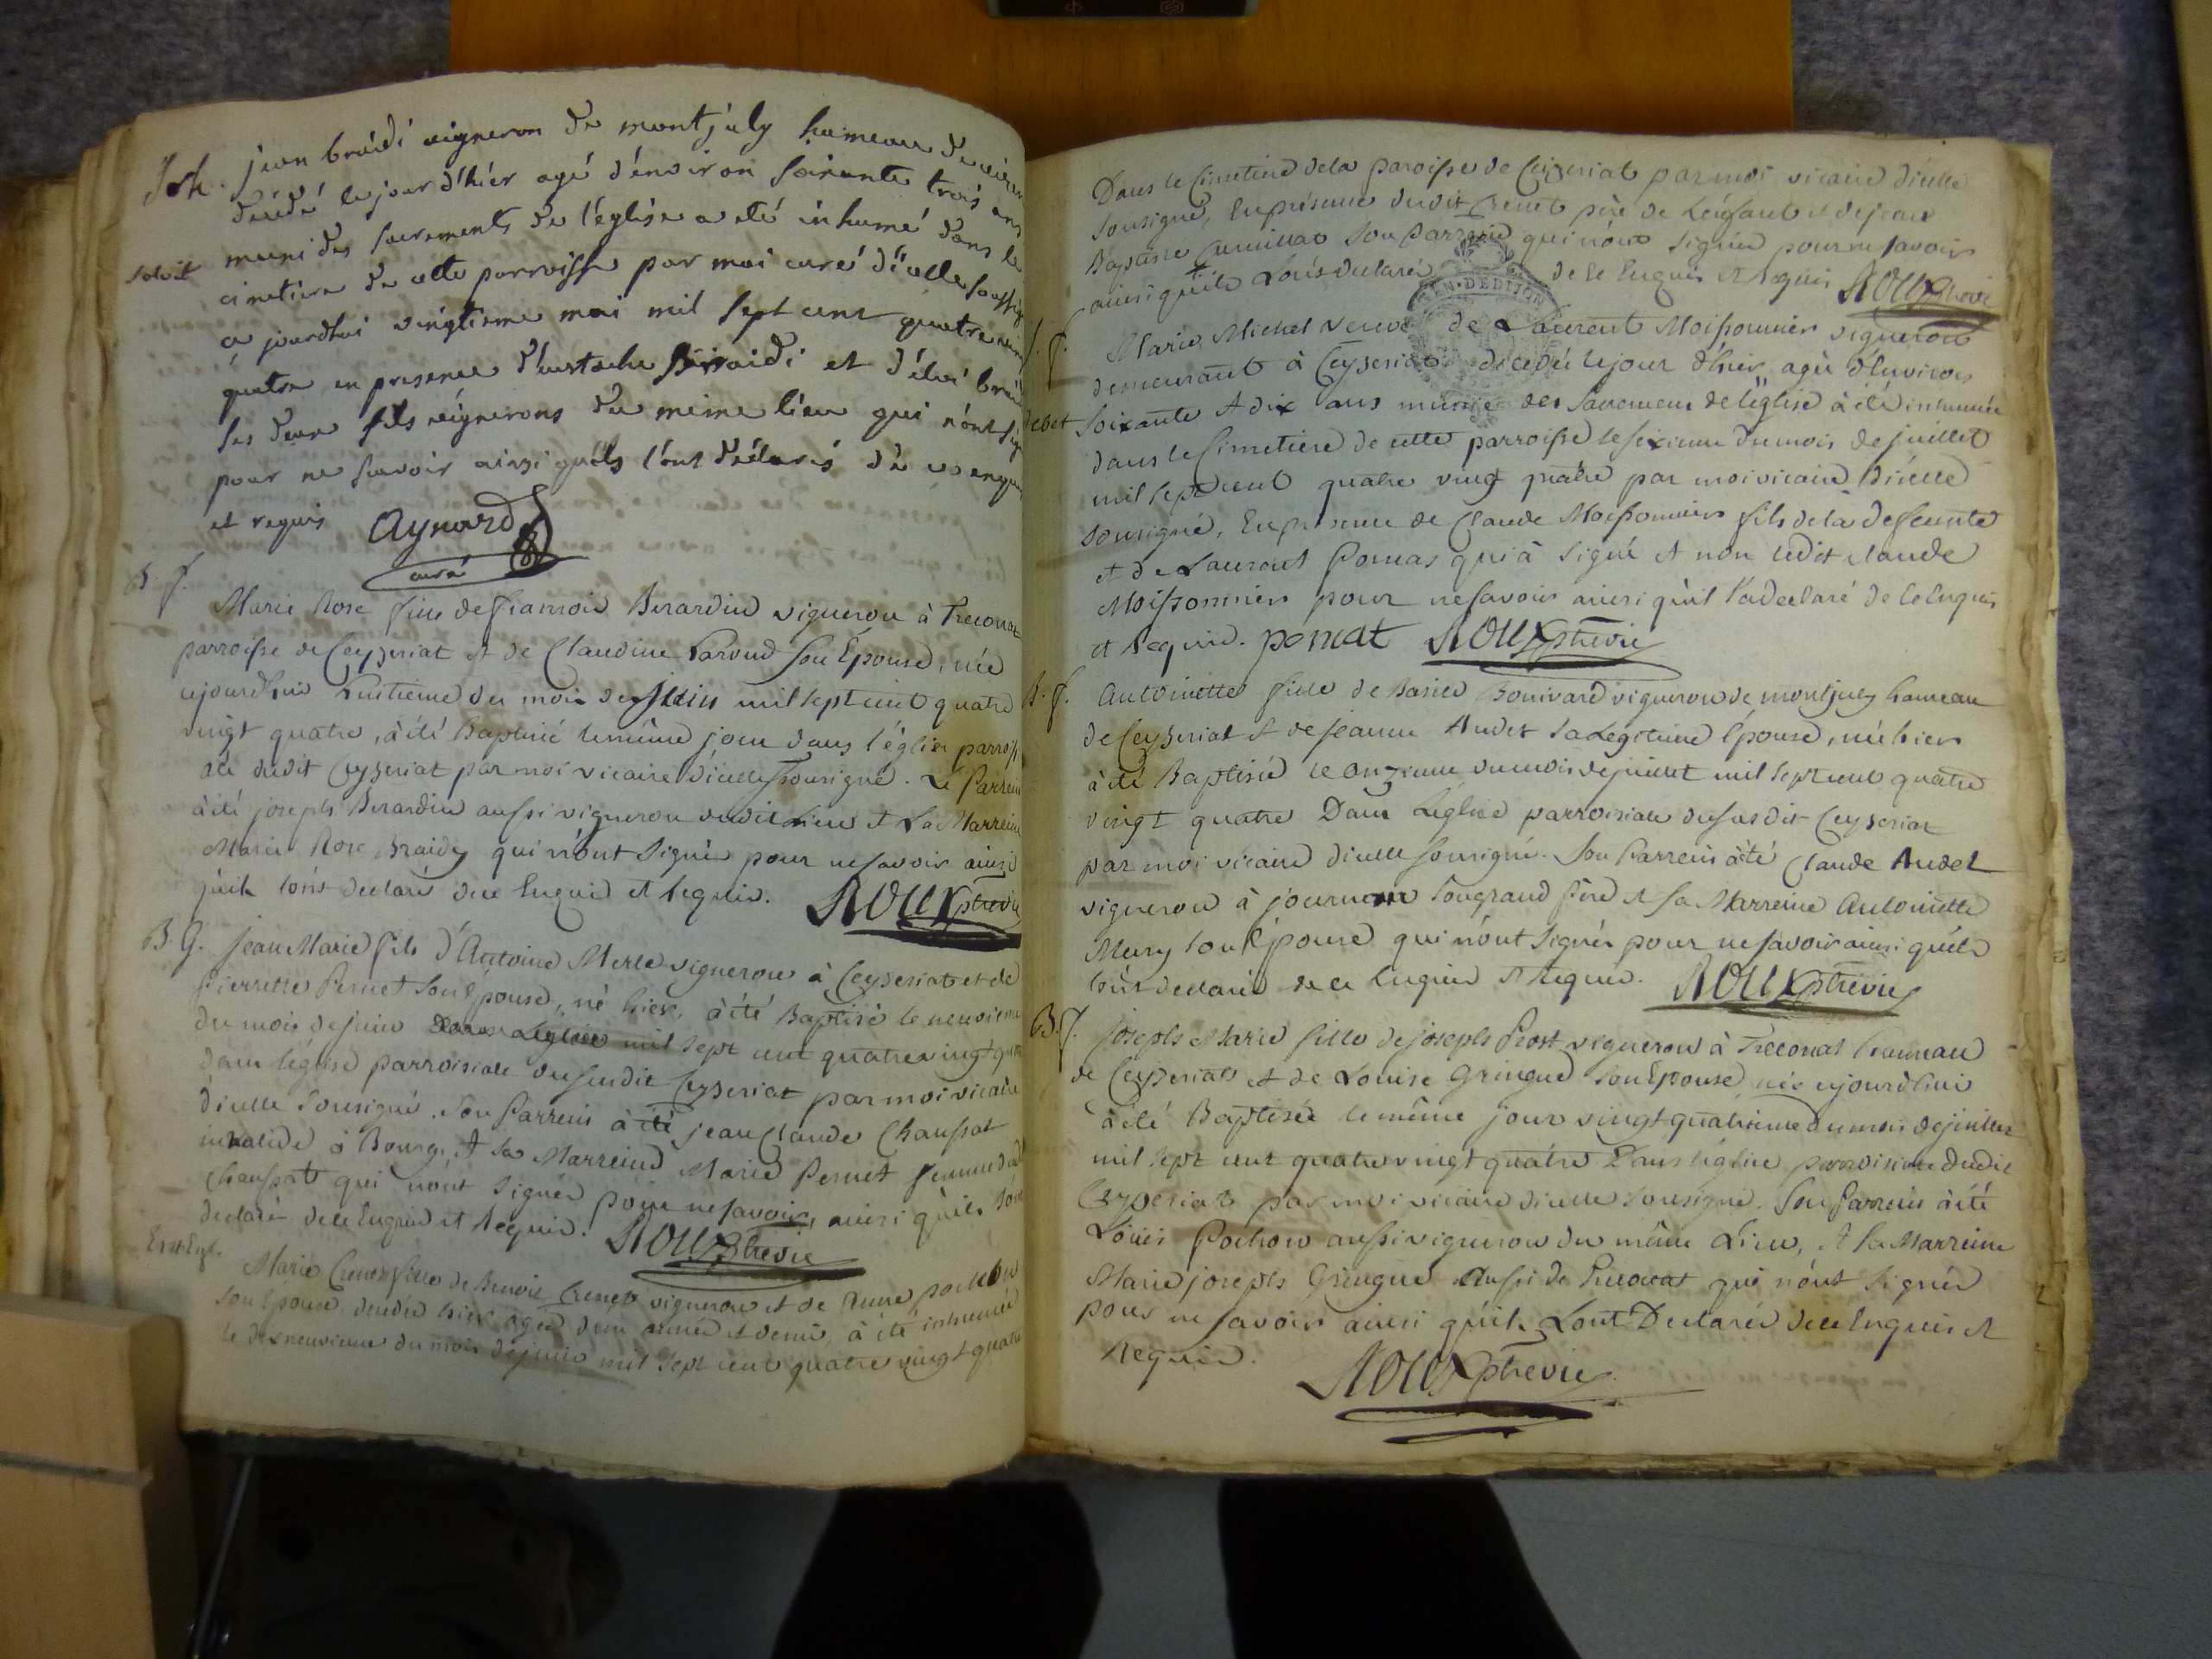 jean braidi vigneron de montjuly hameau de
décédé le jour d'hier agé d'environ soixante trois ans
solvit muni des sacrements de l'église a eté inhumé dans le
cimetiere de cette parroisse par moi curé d'icelle
ce jourdhui vingtieme mai mil sept cent quatre
quatre en presence d'eustache Braidi et d'éloi
ses deux fils vignerons du meme lieu qui n'ont
pour ne savoir ainsi qu'ils l'ont déclaré de ce enquis
et requis Aynard
curé
B. f.
Marie Rose fille de francois Berardin vigneron à Treconat
parroisse de Ceyzeriat et de Claudine son Epouse, née
ajourdhui huitieme du mois de Juin mil sept cent quatre
vingt quatre, à été Baptisée le même jour dans l'église
dudit Ceyzeriat par moi vicaire d'icelle soussigné. Le Parrein
à été joseph Berardin aussi vigneron dudit Lieu et La Marreine
Marie Rose Braidy qui n'ont signé pour ne savoir ainsi
qu'ils l'ont declaré de ce Enquis et Requis. ROUX ptre vic
B. G. Jean Marie fils d'Antoine Merle vigneron à Ceyzeriat et de
Pierrette Pernet son épouse, né hier, à été Baptisé le neuvieme
du mois de juin mil sept cent quatre vingt
dans l'église parroisiale dusudit Ceyzeriat par moi vicaire
d'icelle Sousigné. Son Parrein à été jean Claude Chaussat
invalide à Bourg, et sa Marreine Marie Pernet femme
Chaussat qui n'ont Signés pour ne savoir, ainsi qu'ils
declaré de ce Enquis et Requis. ROUX ptre vic
Marie fille de Benoit Crenet vigneron et de
son Epouse decedée hier agée d'une année et demie à été inhumée
le dixneuvieme du mois de juin mil Sept cent quatre vingt quatre
Dans le Cimetiere dela paroisse de Ceyzeriat par moi vicaire d'icelle
sousigné, En présence dudit Crenet père de L'enfant et de jean
Baptiste son Parrein qui n'ont signés pour ne savoir
ainsi qu'ils L'ont declaré de ce Enquis et Requis ROUX
S. f.
Marie Michel veuve de Laurent Moissonnier vigneron
demeurant à Ceyzeriat decedée le jour d'hier agée d'Environ
debet soixante et dix ans munie des Sacremens de l'église à été inhumée
dans le Cimetiere de cette parroisse le sixieme du mois de juillet
mil sept cent quatre vingt quatre par moi vicaire d'icelle
sousigné, En presence de Claude Moissonnier fils de la deffunte
et de Laurent Pomas qui à Signé et non ledit claude
Moissonnier pour ne savoir ainsi qu'il l'a declaré de ce Enquis
et Requis. ROUX ptre vic
B. f. Antoinette fille de Basile Bonivard vigneron de montjuly hameau
de Ceyzeriat et de jeanne Audet sa Légitime Epouse, née hier
à été Baptisée le onzieme du mois de juillet mil sept cent quatre
vingt quatre Dans L'église parroisiale dusudit Ceyzeriat
par moi vicaire d'icelle sousigné. Son Parrein à été Claude Audet
vigneron à son grand père et sa Marreine Antoinette
Mury son Epouse qui n'ont Signés pour ne savoir ainsi qu'ils
l'ont declaré de ce Enquis et Requis. ROUX ptre vic
B. f. Joseph Marie fille de joseph Prost vigneron à Treconat hameau
de Ceyzeriat et de Louise Gringue son Epouse née ajourdhui
à été Baptisée le même jour vingt quatrieme du mois de juillet
mil sept cent quatre vingt quatre Dans l'église parroisiale dudit
Ceyzeriat par moi vicaire d'icelle sousigné. Son Parrein à été
Louis Pochon aussi vigneron du même Lieu, et sa Marreine
Marie joseph Gringue Aussi de Treconat qui n'ont signés
pour ne savoir ainsi qu'ils L'ont Declaré de ce Enquis et
Requis. ROUX ptre vic